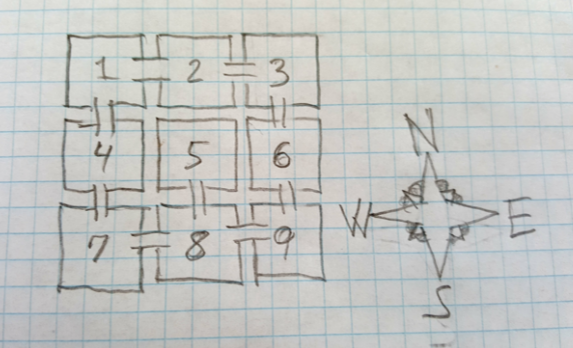 1 2 3
4 5 6
7 8 9
N
W E
S